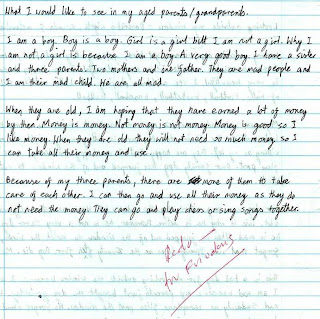 What I would like to see in my aged parents/grandparents.
I am a boy. Boy is a boy. Girl is a girl but I am not a girl. Why I
am not a girl is because I am a boy. A very good boy. I have a sister
and three parents. Two mothers and one father. They are mad people and
I am their mad child. We are all mad.
When they are old, I am hoping that they have earned a lot of money
by then. Money is money. Not money is not money. Money is good so I
like money. When they are old they will not need so much money so I
can take all their money and use.
Because of my three parents, there are more of them to take
care of each other. I can then go and use all their money as they do
not need the money. They can go and play chess or sing songs together.
Redo -
too Frivolous